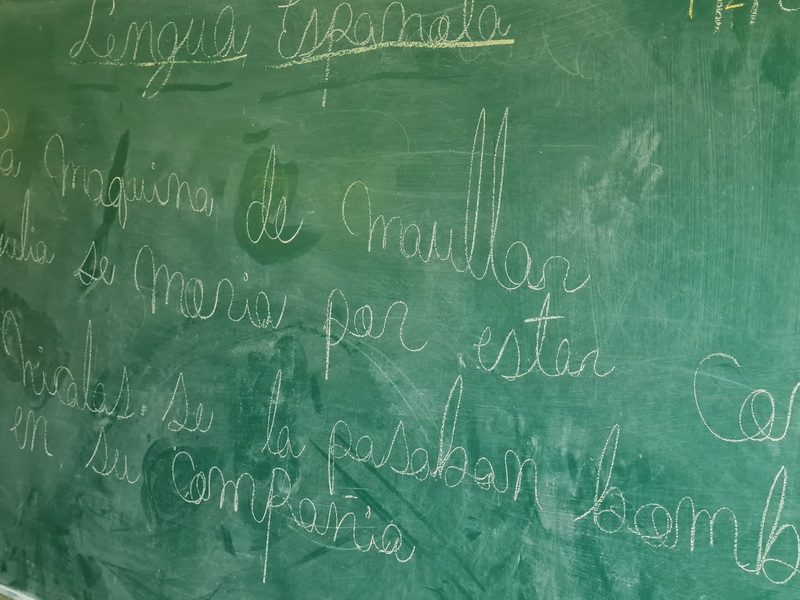 Lengua Española
La maquina de Maullar
se moria por estar Con
Nicolas. Se la pasaban bomb
en su Compañia